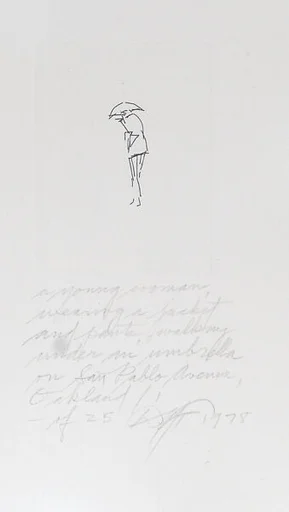 a young woman,
wearing a jacket
and pants, walking
under an umbrella
on San Pablo Avenue,
Oakland
of 25 1978